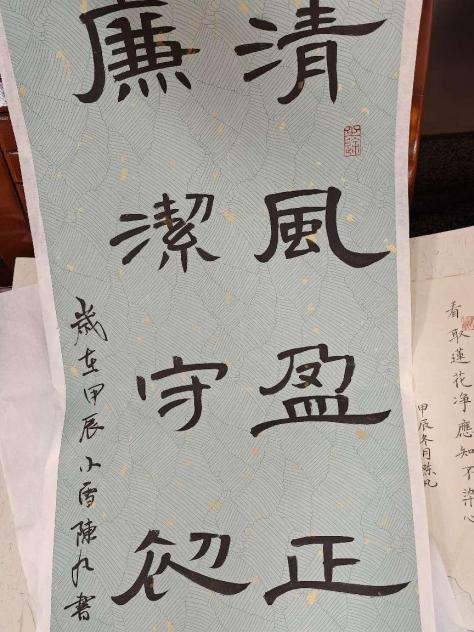 清風盈正
廉潔守初
歲在甲辰小雪陳凡書
看取蓮花净應知不染心
甲辰冬月陈凡